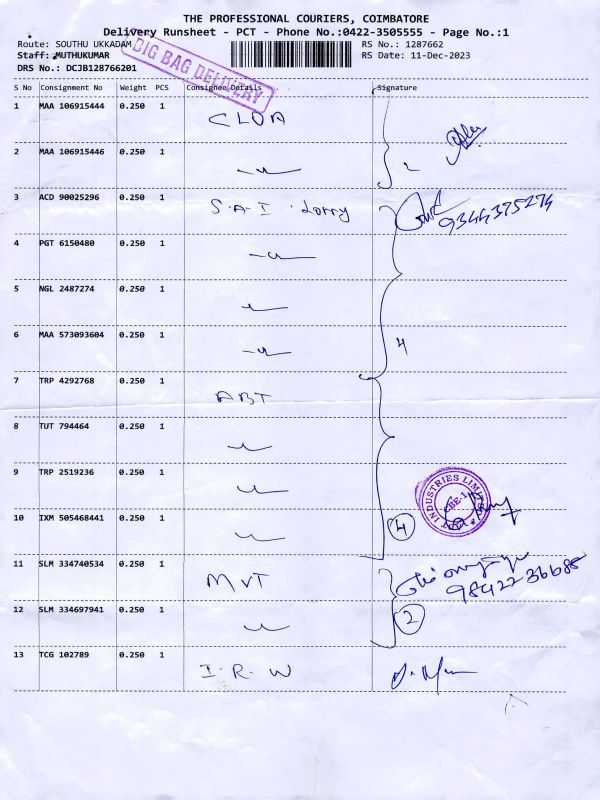 THE PROFESSIONAL COURIERS, COIMBATORE
Delivery Runsheet - PCT - Phone No.:0422-3505555 - Page No.:1
Route: SOUTHU UKKADAM
RS No.: 1287662
Staff: MUTHUKUMAR
RS Date: 11-Dec-2023
DRS No.: DCJB128766201
BIG BAG DELIVERY
S No Consignment No Weight PCS Consignee Details Signature
1 MAA 106915444 0.250 1
2 MAA 106915446 0.250 1
3 ACD 90025296 0.250 1 S.A.I. Lorry 9344375274
4 PGT 6150480 0.250 1
5 NGL 2487274 0.250 1
6 MAA 573093604 0.250 1 4
7 TRP 4292768 0.250 1 ABT
8 TUT 794464 0.250 1
9 TRP 2519236 0.250 1
INDUSTRIES LIMITED
CBE-1
10 IXM 505468441 0.250 1 4
11 SLM 334740534 0.250 1 MVT
12 SLM 334697941 0.250 1 2
13 TCG 102789 0.250 1 I.R.W